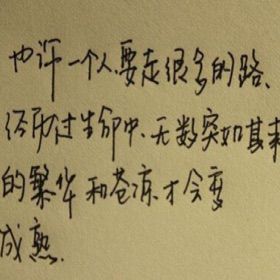 也许一个人要走很多的路、
经历过生命中、无数突如其来
的繁华和苍凉才会变
成熟.